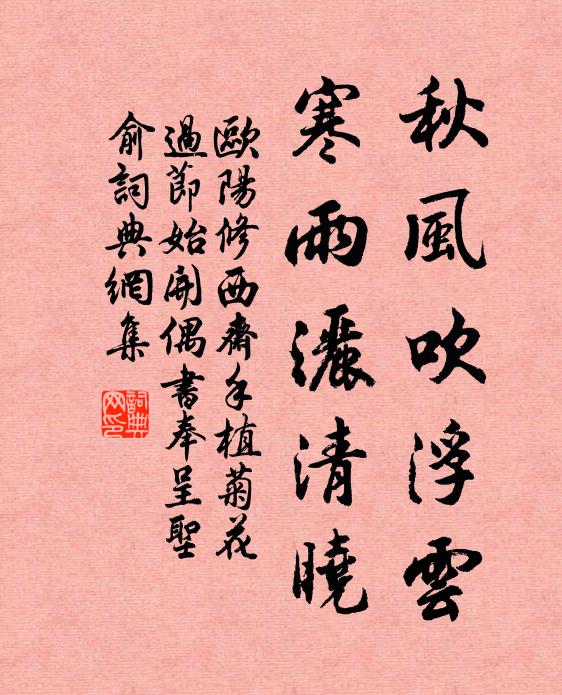 秋風吹浮雲
寒雨灑清曉
歐陽修西齋手植菊花
過節始開偶書奉呈聖
俞詞典網集
詞典網印